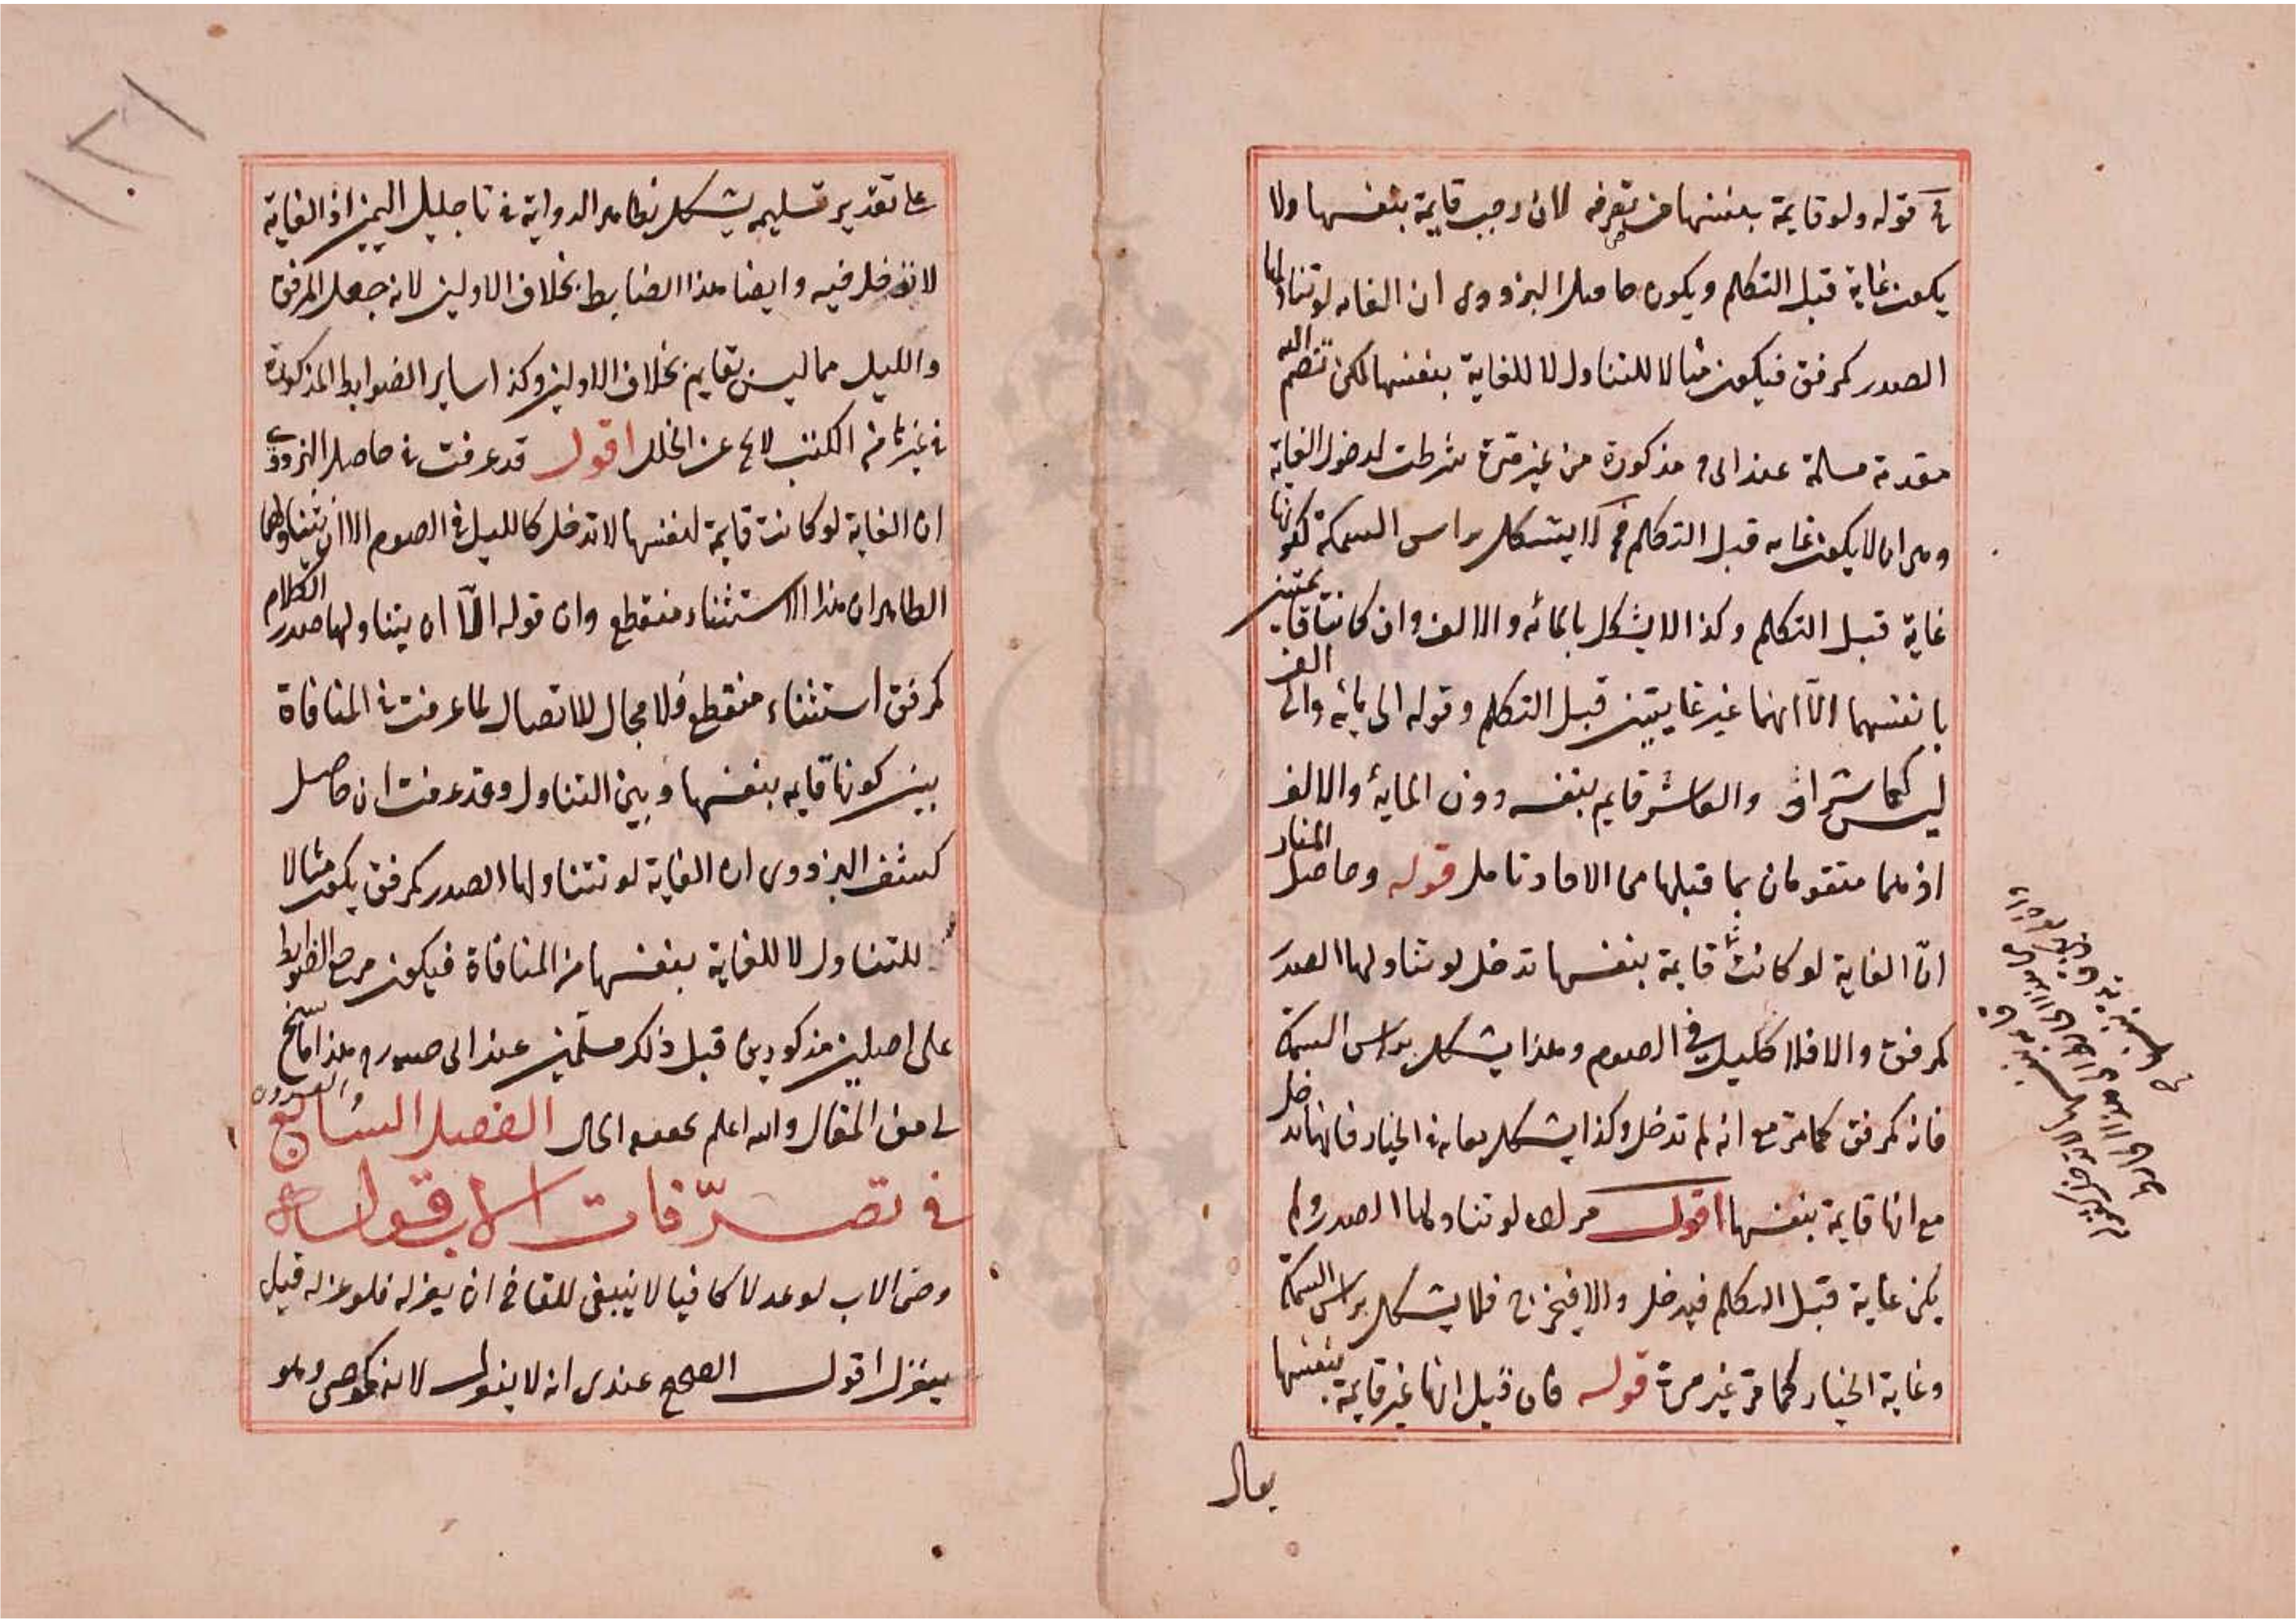 في قوله ولو قايمة بنفسها من تعرفه لان وجب قايمة بنفسها ولا
يكون غاية قبل التكلم ويكون حاصل البزدوى ان الغايه لو تناولها
الصدر كمرفق فيكون مثالا للتناول لا للغاية بنفسها لكن تنضم اليه
مقدمة مسلمة عند الى مذكورة من غير مرة شرطت لدخول الغاية
وهى ان لا يكون غايه قبل التكلم فح لا يشكل براس السمكة لكونها
غاية قبل التكلم وكذا لا يشكل بالمائه والالف وان كانتا قايمتين
بانفسهما الا انهما غير غايتين قبل التكلم وقوله الى مايه والى الف
ليس كعاشر والعاشر قايم بنفسه دون الماية والالف
اذ هما متقومان بما قبلها من الاحاد تامل قوله وحاصل المنار
ان الغاية لو كانت قايمة بنفسها تدخل لو تناولها الصدر
كمرفق والا فلا كليل في الصوم وهذا يشكل براس السمكة
فانه كمرفق كما مر مع انه لم تدخل وكذا يشكل بغاية الخيار فانها تدخل
مع انها قايمة بنفسها اقول مراده لو تناولها الصدر ولم
يكن غاية قبل التكلم فيدخل والا فيخرج فلا يشكل براس السمكة
وغاية الخيار كما مر غير مرة قوله فان قيل انها غير قايمة بنفسها
يقال
على تقدير تسليمه يشكل بظاهر الرواية في تاجيل اليمين اذ الغاية
لا تدخل فيه وايضا هذا الضابط بخلاف الاولين لانه جعل المرفق
والليل مما ليس بقايم بخلاف الاولين وكذا ساير الضوابط المذكورة
في غير ما من الكتب لا يخ عن الخلل اقول قد عرفت في حاصل البزدوى
ان الغاية لو كانت قايمة بنفسها لا تدخل كالليل في الصوم الا ان يتناولها
الظاهر ان هذا الاستثناء منقطع وان قوله الا ان يتناولها صدر الكلام
كمرفق استثناء منقطع فلا مجال للاتصال لما عرفت في المنافاة
بين كونها قايمه بنفسها وبين التناول وقد عرفت ان حاصل
كشف البزدوى ان الغاية لو تتناولها الصدر كمرفق يكون مثالا
للتناول لا للغاية بنفسها من المنافاة فيكون مرجع الضوابط
على اصلين مذكورين قبل ذلك مسلمين عند الى هذا ما سنح
لى من المقال والله اعلم بحقيقه الحال الفصل السابع والعشرون
في تصرفات الاب قوله
وصى الاب لو عدلا كافيا لا ينبغى للقاضى ان يعزله فلو عزله قيل
ينعزل اقول الصحيح عندى انه لا ينعزل لانه كموصى وهو